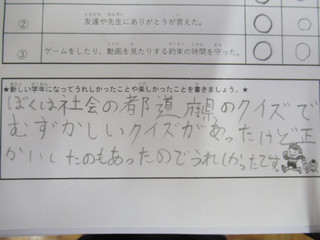 ② 友達や先生にありがとうが言えた。 ○ ○
③ ゲームをしたり、動画を見たりする約束の時間を守った。 ○ ○
★新しい学年になってうれしかったことや楽しかったことを書きましょう。
ぼくは社会の都道府県のクイズで
むずかしいクイズがあったけど正
かいしたのもあったのでうれしかったです。